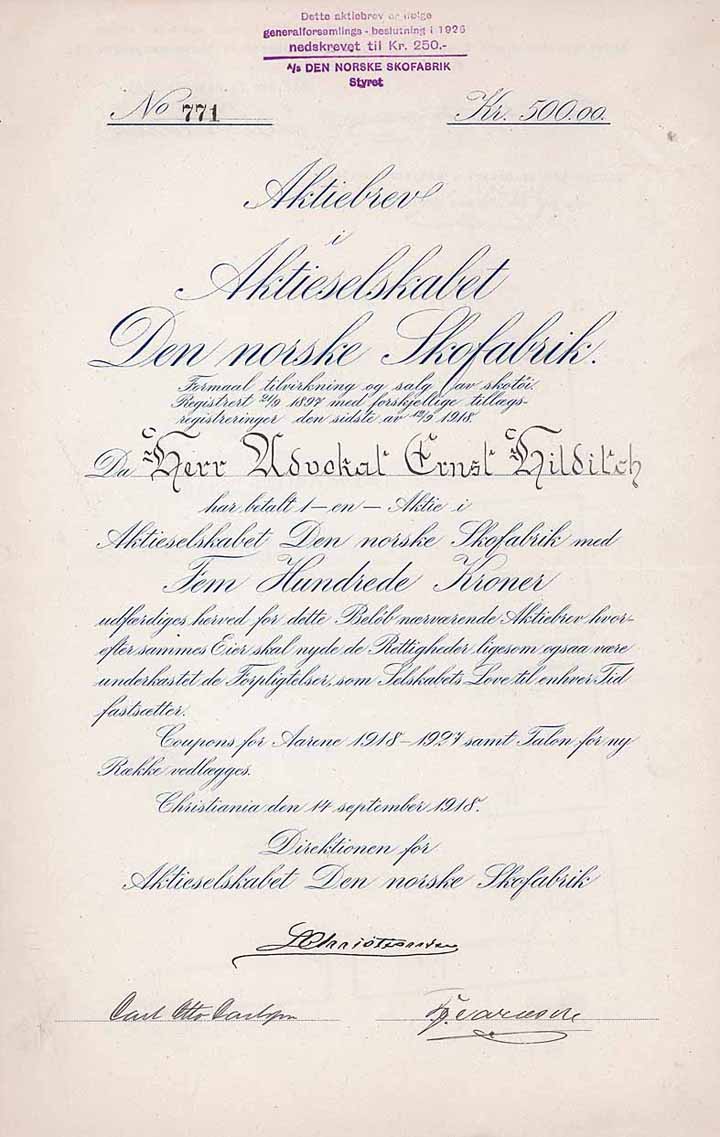 Dette aktiebrev er ifølge
generalforsamlings - beslutning i 1926
nedskrevet til Kr. 250.-
A/s DEN NORSKE SKOFABRIK
Styret
No 771
Kr. 500.00.
Aktiebrev
i
Aktieselskabet
Den norske Skofabrik.
Formaal tilvirkning og salg av skotöi.
Registrert 21/9 1897 med forskjellige tillægs-
registreringer den sidste av 12/9 1918.
Da Herr Advokat Ernst Hilditch
har betalt 1 – en – Aktie i
Aktieselskabet Den norske Skofabrik med
Fem Hundrede Kroner
udfærdiges herved for dette Belöb nærværende Aktiebrev, hvor-
efter sammes Eier skal nyde de Rettigheder, ligesom ogsaa være
underkastet de Forpligtelser, som Selskabets Love til enhver Tid
fastsætter.
Coupons for Aarene 1918 – 1927 samt Talon for ny
Række vedlægges.
Christiania den 14 september 1918.
Direktionen for
Aktieselskabet Den norske Skofabrik
Carl Otto